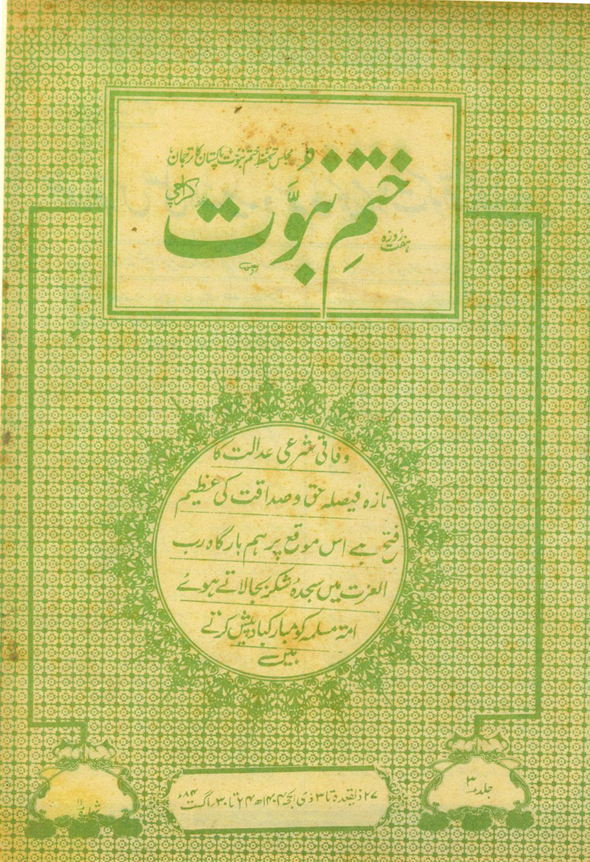 مجلس تحفظ ختم نبوت پاکستان کا ترجمان
ہفت روزہ
ختمِ نبوَّت
کراچی
وفاقی شرعی عدالت کا
تازہ فیصلہ حق و صداقت کی عظیم
فتح ہے اس موقع پر ہم بارگاہ رب
العزت میں سجدۂ شکر بجالاتے ہوئے
امت مسلمہ کو مبارکباد پیش کرتے
ہیں
جلد ۳
۲۷ ذیقعدہ تا ۳ ذی الحجہ ۱۴۰۴ھ ۲۴ تا ۳۰ اگست ۸۴ء